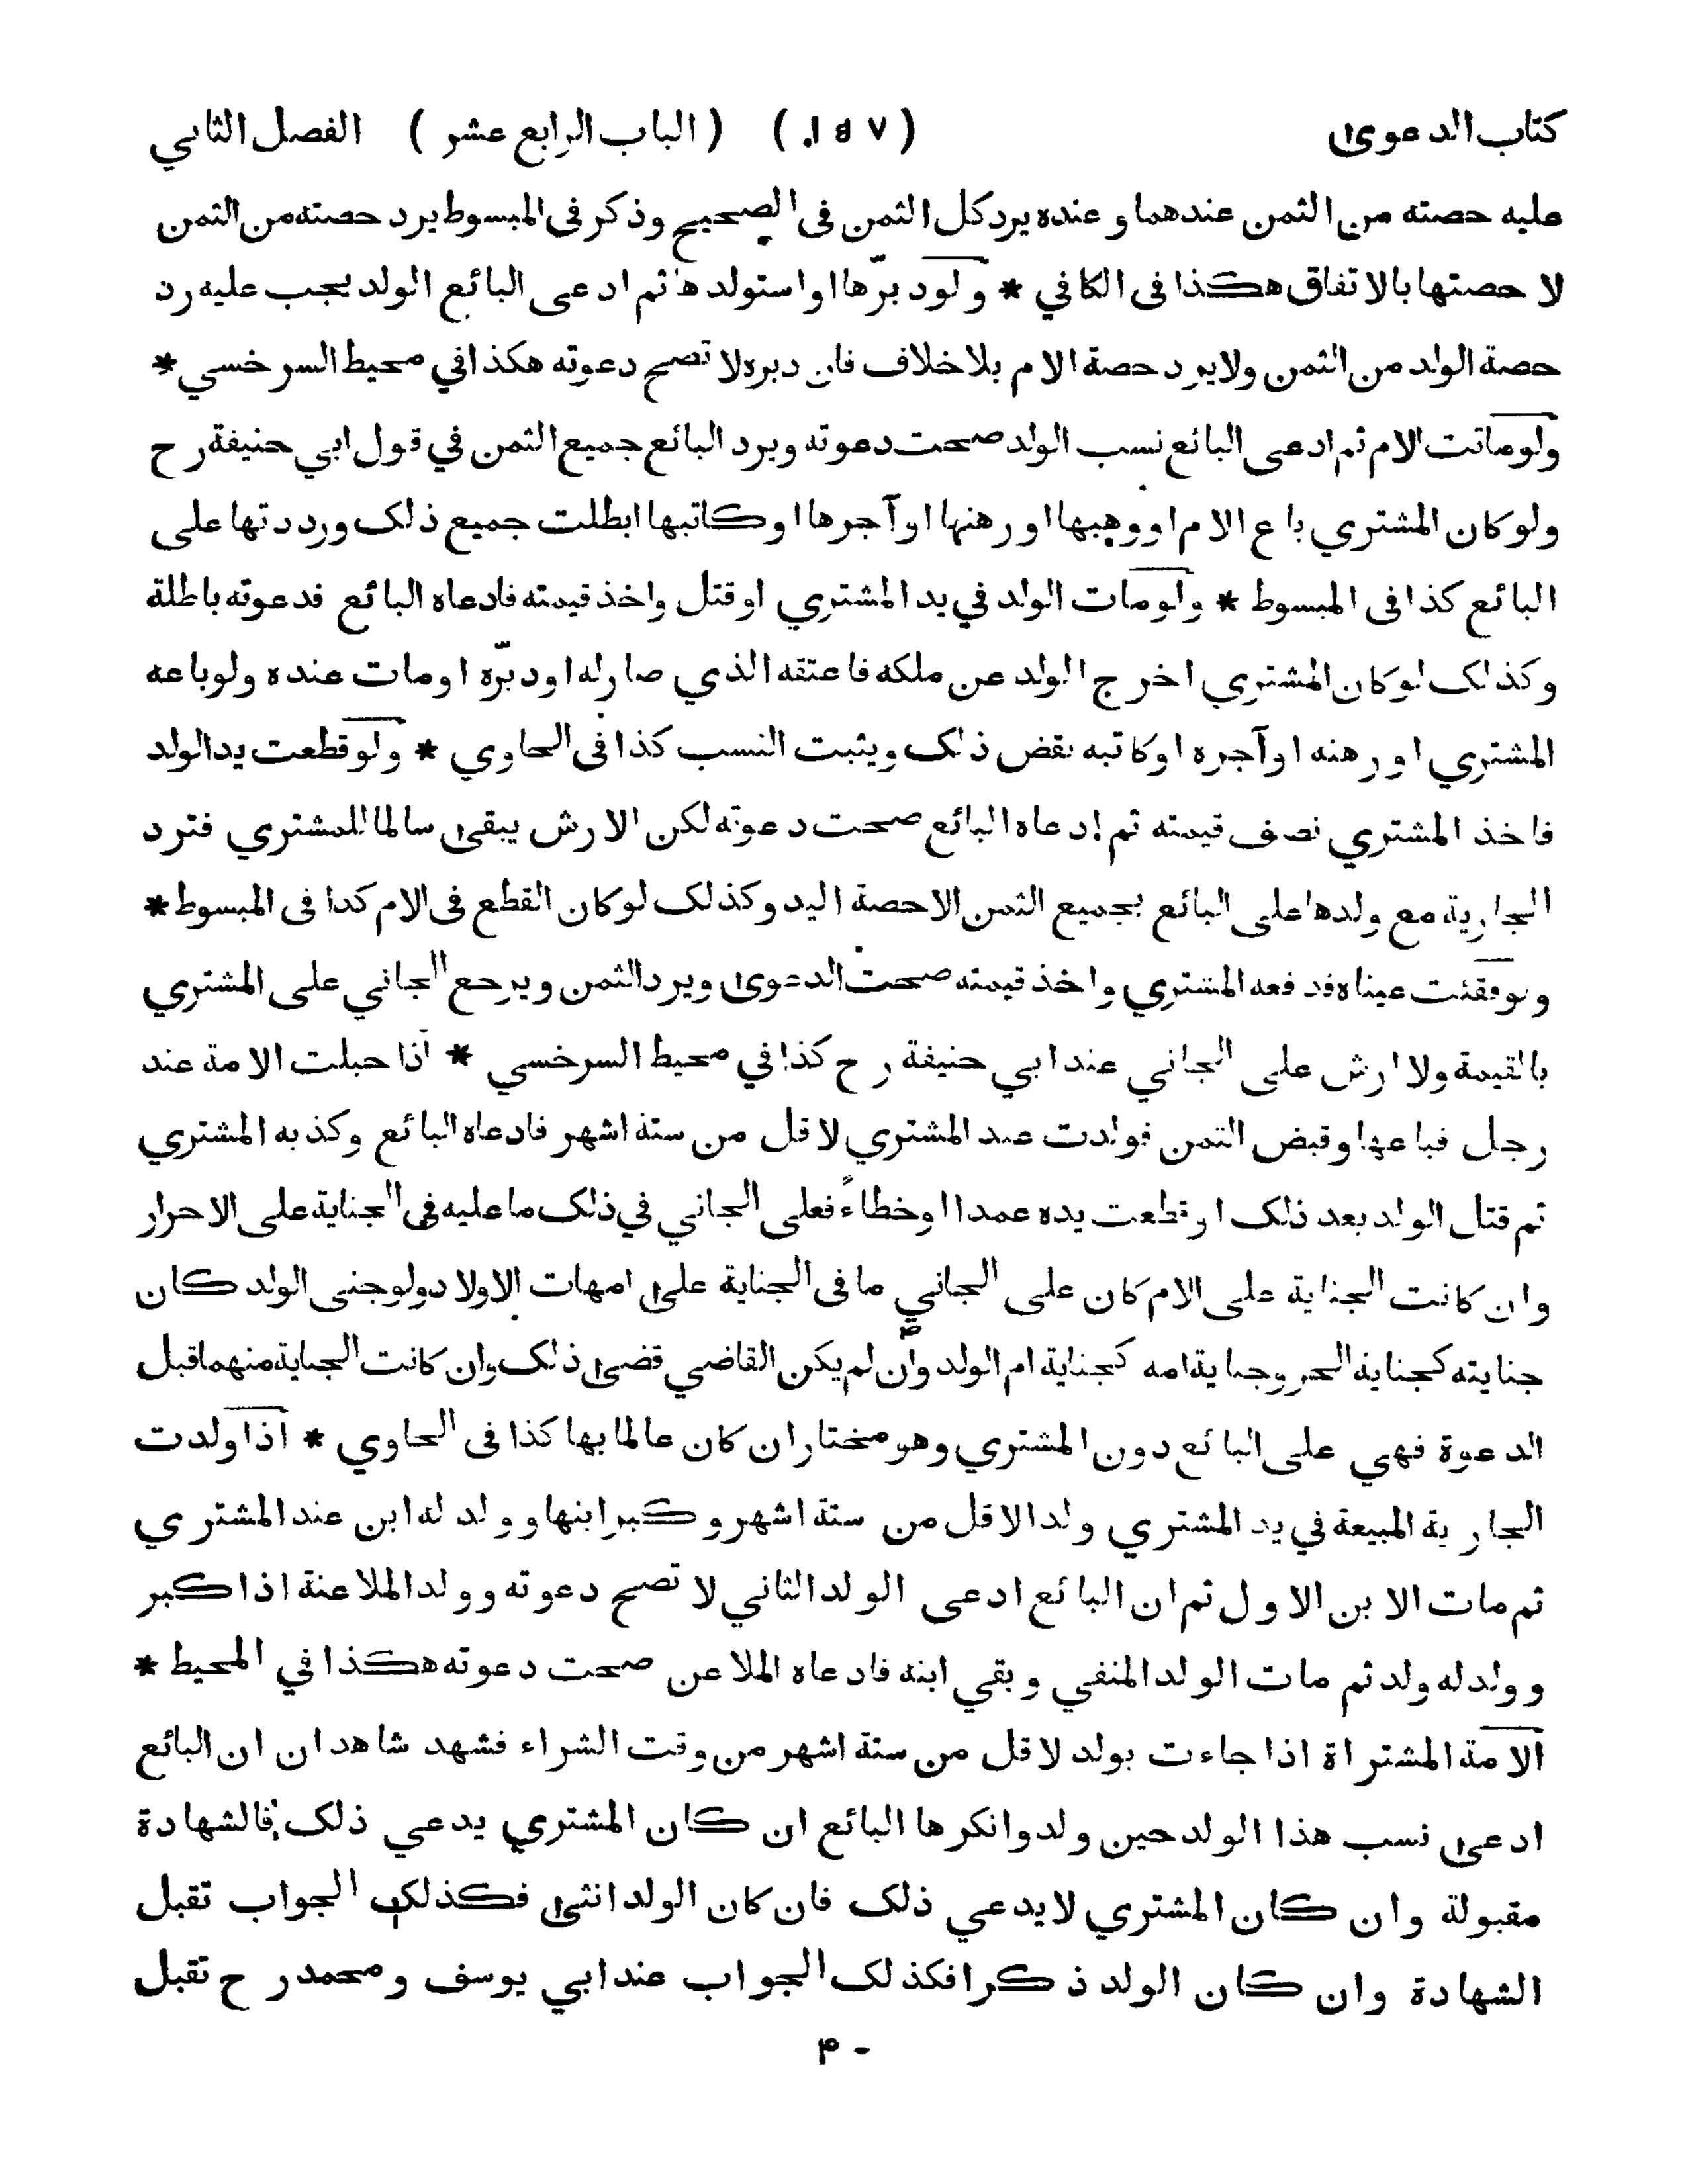 كتاب الدعوى ( ١٥٧ ) ( الباب الرابع عشر ) الفصل الثاني
عليه حصته من الثمن عندهما و عنده يرد كل الثمن فى الصحيح وذكر فى المبسوط يرد حصته من الثمن
لا حصتها بالاتفاق هكذا فى الكافي * ولو دبرّها او استولدها ثم ادعى البائع الولد يجب عليه رد
حصة الولد من الثمن ولا يرد حصة الام بلا خلاف فان دبره لا تصح دعوته هكذا في محيط السرخسي *
ولو ماتت الام ثم ادعى البائع نسب الولد صحت دعوته ويرد البائع جميع الثمن في قول ابي حنيفة رح
ولو كان المشتري باع الام او وهبها او رهنها او آجرها او كاتبها ابطلت جميع ذلك ورددتها على
البائع كذا فى المبسوط * ولو مات الولد في يد المشتري او قتل واخذ قيمته فادعاه البائع فدعوته باطلة
وكذلك لو كان المشتري اخرج الولد عن ملكه فاعتقه الذي صار له او دبرّه او مات عنده ولو باعه
المشتري او رهنه او آجره او كاتبه نقض ذلك ويثبت النسب كذا فى الحاوي * ولو قطعت يد الولد
فاخذ المشتري نصف قيمته ثم ادعاه البائع صحت دعوته لكن الارش يبقى سالما للمشتري فترد
الجارية مع ولدها على البائع بجميع الثمن الا حصة اليد وكذلك لو كان القطع فى الام كذا فى المبسوط *
ولو فقئت عيناه فدفعه المشتري واخذ قيمته صحت الدعوى ويرد الثمن ويرجع الجاني على المشتري
بالقيمة ولا ارش على الجاني عند ابي حنيفة رح كذا في محيط السرخسي * اذا حبلت الامة عند
رجل فباعها وقبض الثمن فولدت عند المشتري لاقل من ستة اشهر فادعاه البائع وكذبه المشتري
ثم قتل الولد بعد ذلك او قطعت يده عمدا او خطاءً فعلى الجاني في ذلك ما عليه فى الجناية على الاحرار
وان كانت الجناية على الام كان على الجاني ما فى الجناية على امهات الاولاد ولو جنى الولد كان
جنايته كجناية الحر وجناية امه كجناية ام الولد وان لم يكن القاضي قضى ذلك وان كانت الجناية منهما قبل
الدعوة فهي على البائع دون المشتري وهو مختار ان كان عالما بها كذا فى الحاوي * اذا ولدت
الجارية المبيعة في يد المشتري ولدا لاقل من ستة اشهر و كبر ابنها وولد له ابن عند المشتري
ثم مات الابن الاول ثم ان البائع ادعى الولد الثاني لا تصح دعوته وولد الملاعنة اذا كبر
وولد له ولد ثم مات الولد المنفي و بقي ابنه فادعاه الملاعن صحت دعوته هكذا في المحيط *
الامة المشتراة اذا جاءت بولد لاقل من ستة اشهر من وقت الشراء فشهد شاهدان ان البائع
ادعى نسب هذا الولد حين ولد وانكرها البائع ان كان المشتري يدعي ذلك فالشهادة
مقبولة وان كان المشتري لا يدعي ذلك فان كان الولد انثى فكذلك الجواب تقبل
الشهادة وان كان الولد ذكرا فكذلك الجواب عند ابي يوسف ومحمد رح تقبل